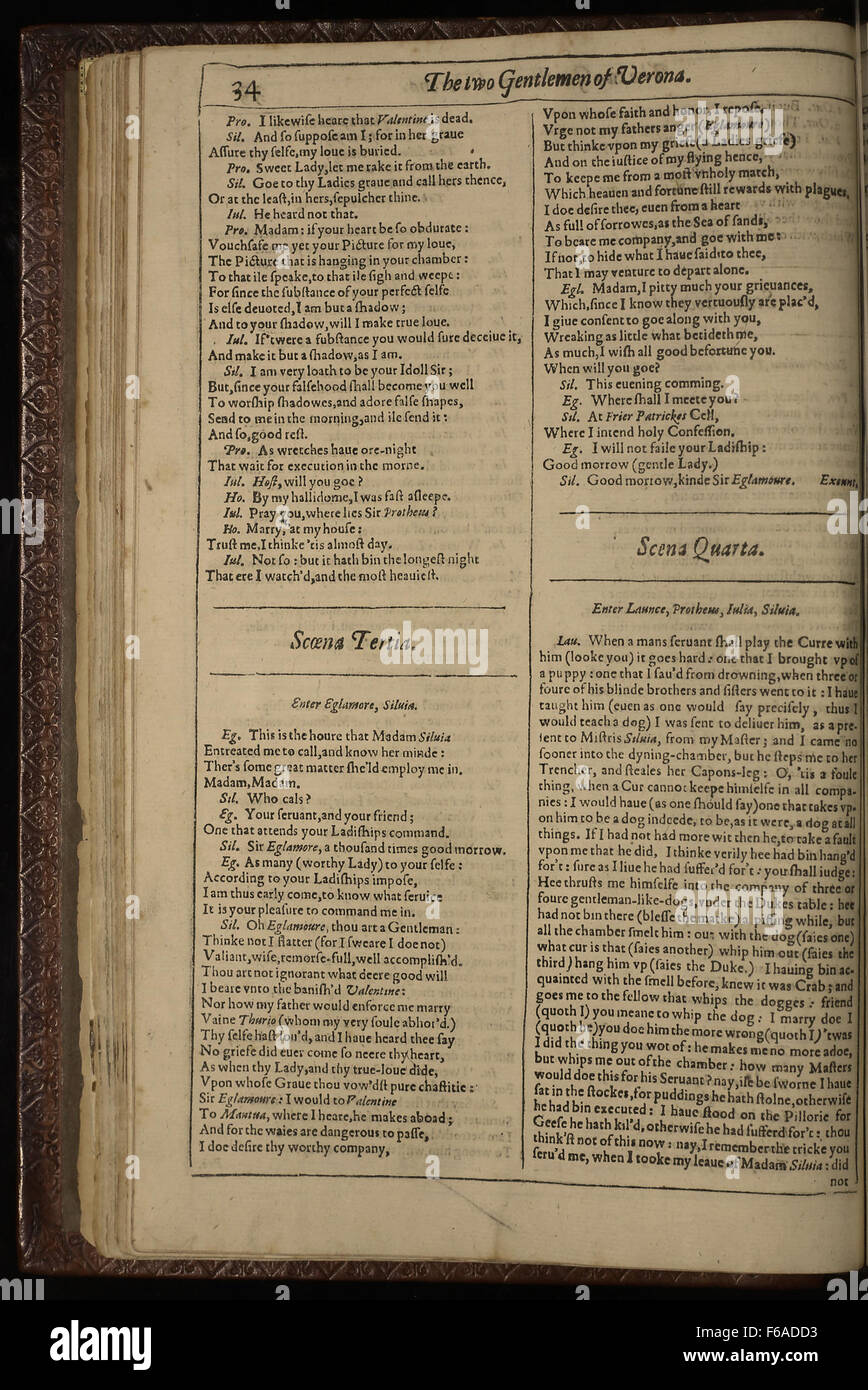 34
The two Gentlemen of Verona.
Pro. I likewiſe heare that Valentine is dead.
Sil. And ſo ſuppoſe am I; for in her graue
Aſſure thy ſelfe, my loue is buried.
Pro. Sweet Lady, let me rake it from the earth.
Sil. Goe to thy Ladies graue and call hers thence,
Or at the leaſt, in hers, ſepulcher thine.
Iul. He heard not that.
Pro. Madam: if your heart be ſo obdurate:
Vouchſafe me yet your Picture for my loue,
The Picture that is hanging in your chamber:
To that ile ſpeake, to that ile ſigh and weepe:
For ſince the ſubſtance of your perfect ſelfe
Is elſe deuoted, I am but a ſhadow;
And to your ſhadow, will I make true loue.
Iul. If 'twere a ſubſtance you would ſure deceiue it,
And make it but a ſhadow, as I am.
Sil. I am very loath to be your Idoll Sir;
But, ſince your falſehood ſhall become you well
To worſhip ſhadowes, and adore falſe ſhapes,
Send to me in the morning, and ile ſend it:
And ſo, good reſt.
Pro. As wretches haue ore-night
That wait for execution in the morne.
Iul. Hoſt, will you goe?
Ho. By my hallidome, I was faſt aſleepe.
Iul. Pray you, where lies Sir Protheus?
Ho. Marry, at my houſe:
Truſt me, I thinke 'tis almoſt day.
Iul. Not ſo: but it hath bin the longeſt night
That ere I watch'd, and the moſt heauieſt.
Scœna Tertia.
Enter Eglamore, Siluia.
Eg. This is the houre that Madam Siluia
Entreated me to call, and know her minde:
Ther's ſome great matter ſhe'ld employ me in.
Madam, Madam.
Sil. Who cals?
Eg. Your ſeruant, and your friend;
One that attends your Ladiſhips command.
Sil. Sir Eglamore, a thouſand times good morrow.
Eg. As many (worthy Lady) to your ſelfe:
According to your Ladiſhips impoſe,
I am thus early come, to know what ſeruice
It is your pleaſure to command me in.
Sil. Oh Eglamoure, thou art a Gentleman:
Thinke not I flatter (for I ſweare I doe not)
Valiant, wiſe, remorſe-full, well accompliſh'd.
Thou art not ignorant what deere good will
I beare vnto the baniſh'd Valentine:
Nor how my father would enforce me marry
Vaine Thurio (whom my very ſoule abhor'd.)
Thy ſelfe haſt lou'd, and I haue heard thee ſay
No griefe did euer come ſo neere thy heart,
As when thy Lady, and thy true-loue dide,
Vpon whoſe Graue thou vow'dſt pure chaſtitie:
Sir Eglamoure: I would to Valentine
To Mantua, where I heare, he makes aboad;
And for the waies are dangerous to paſſe,
I doe deſire thy worthy company,
Vpon whoſe faith and honor, I repoſe.
Vrge not my fathers anger (Eglamoure)
But thinke vpon my griefe (a Ladies griefe)
And on the iuſtice of my flying hence,
To keepe me from a moſt vnholy match,
Which heauen and fortune ſtill rewards with plagues,
I doe deſire thee, euen from a heart
As full of ſorrowes, as the Sea of ſands,
To beare me company, and goe with me:
If not, to hide what I haue ſaid to thee,
That I may venture to depart alone.
Egl. Madam, I pitty much your grieuances,
Which, ſince I know they vertuouſly are plac'd,
I giue conſent to goe along with you,
Wreaking as little what betideth me,
As much, I wiſh all good befortune you.
When will you goe?
Sil. This euening comming.
Eg. Where ſhall I meete you?
Sil. At Frier Patrickes Cell,
Where I intend holy Confeſſion.
Eg. I will not faile your Ladiſhip:
Good morrow (gentle Lady.)
Sil. Good morrow, kinde Sir Eglamoure. Exeunt.
Scena Quarta.
Enter Launce, Protheus, Iulia, Siluia.
Lau. When a mans ſeruant ſhall play the Curre with
him (looke you) it goes hard: one that I brought vp of
a puppy: one that I ſau'd from drowning, when three or
foure of his blinde brothers and ſiſters went to it: I haue
taught him (euen as one would ſay preciſely, thus I
would teach a dog) I was ſent to deliuer him, as a pre-
ſent to Miſtris Siluia, from my Maſter; and I came no
ſooner into the dyning-chamber, but he ſteps me to her
Trencher, and ſteales her Capons-leg: O, 'tis a foule
thing, when a Cur cannot keepe himſelfe in all compa-
nies: I would haue (as one ſhould ſay) one that takes vp-
on him to be a dog indeede, to be, as it were, a dog at all
things. If I had not had more wit then he, to take a fault
vpon me that he did, I thinke verily hee had bin hang'd
for't: ſure as I liue he had ſuffer'd for't: you ſhall iudge:
Hee thruſts me himſelfe into the company of three or
foure gentleman-like-dogs, vnder the Dukes table: hee
had not bin there (bleſſe the marke) a piſſing while, but
all the chamber ſmelt him: out with the dog (ſaies one)
what cur is that (ſaies another) whip him out (ſaies the
third) hang him vp (ſaies the Duke.) I hauing bin ac-
quainted with the ſmell before, knew it was Crab; and
goes me to the fellow that whips the dogges: friend
(quoth I) you meane to whip the dog: I marry doe I
(quoth he) you doe him the more wrong (quoth I) 'twas
I did the thing you wot of: he makes me no more adoe,
but whips me out of the chamber: how many Maſters
would doe this for his Seruant? nay, ile be ſworne I haue
ſat in the ſtockes, for puddings he hath ſtolne, otherwiſe
he had bin executed: I haue ſtood on the Pillorie for
Geeſe he hath kil'd, otherwiſe he had ſufferd for't: thou
think'ſt not of this now: nay, I remember the tricke you
ſeru'd me, when I tooke my leaue of Madam Siluia: did
not
alamy
Image ID: F6ADD3
www.alamy.com